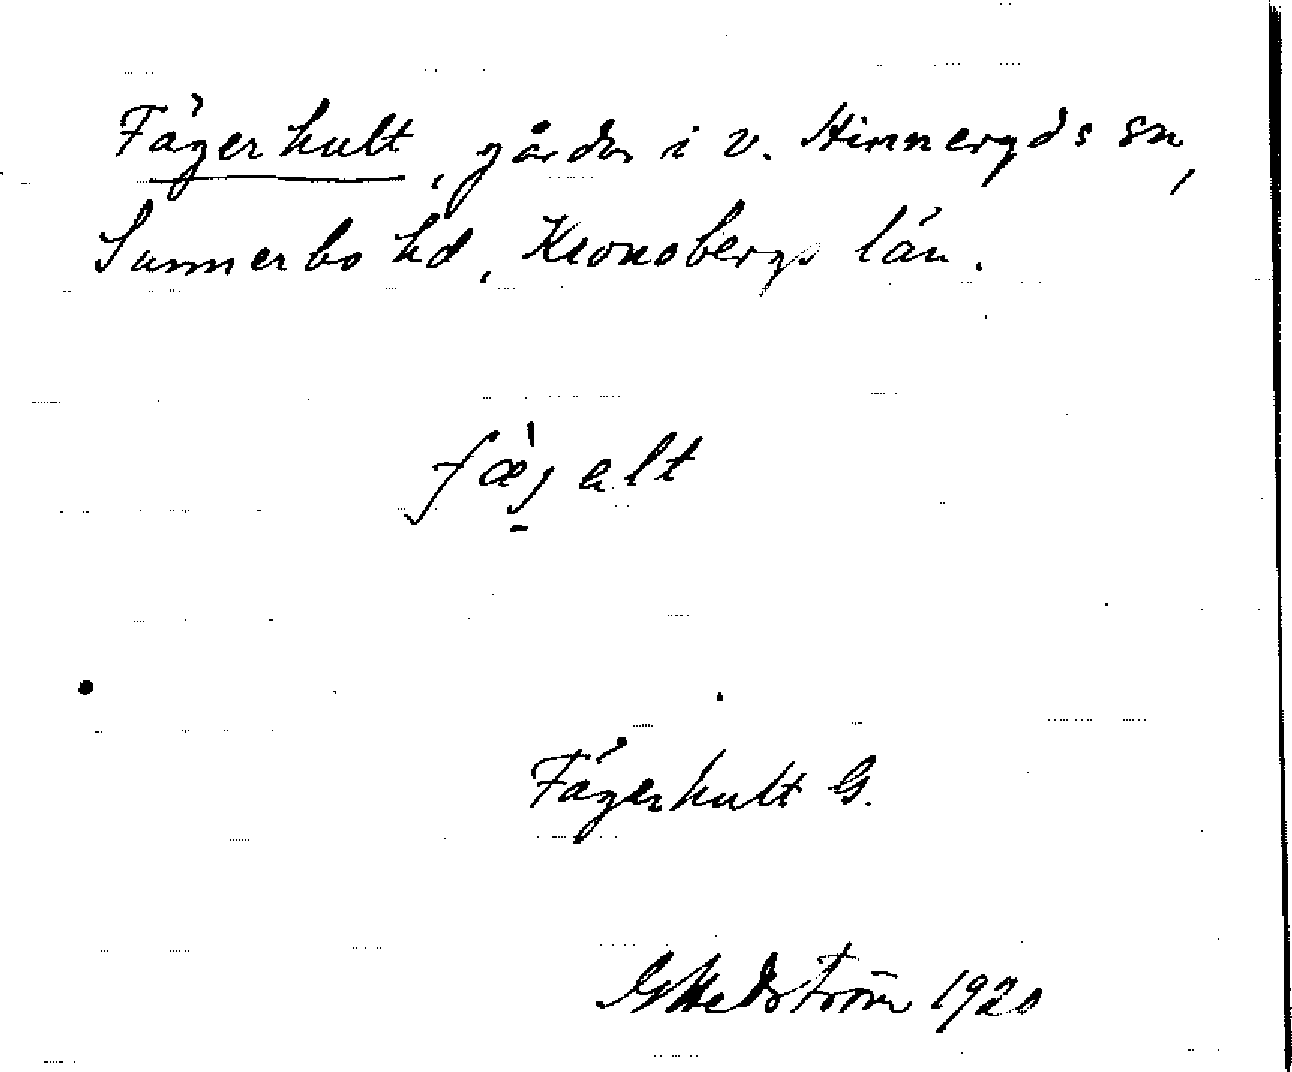 Fägerhult, gårdar i v. Hinneryds sn,
Sunnerbo hd, Kronobergs län.
fæ̀jalt
Fägerhult G.
G Hedström 1920